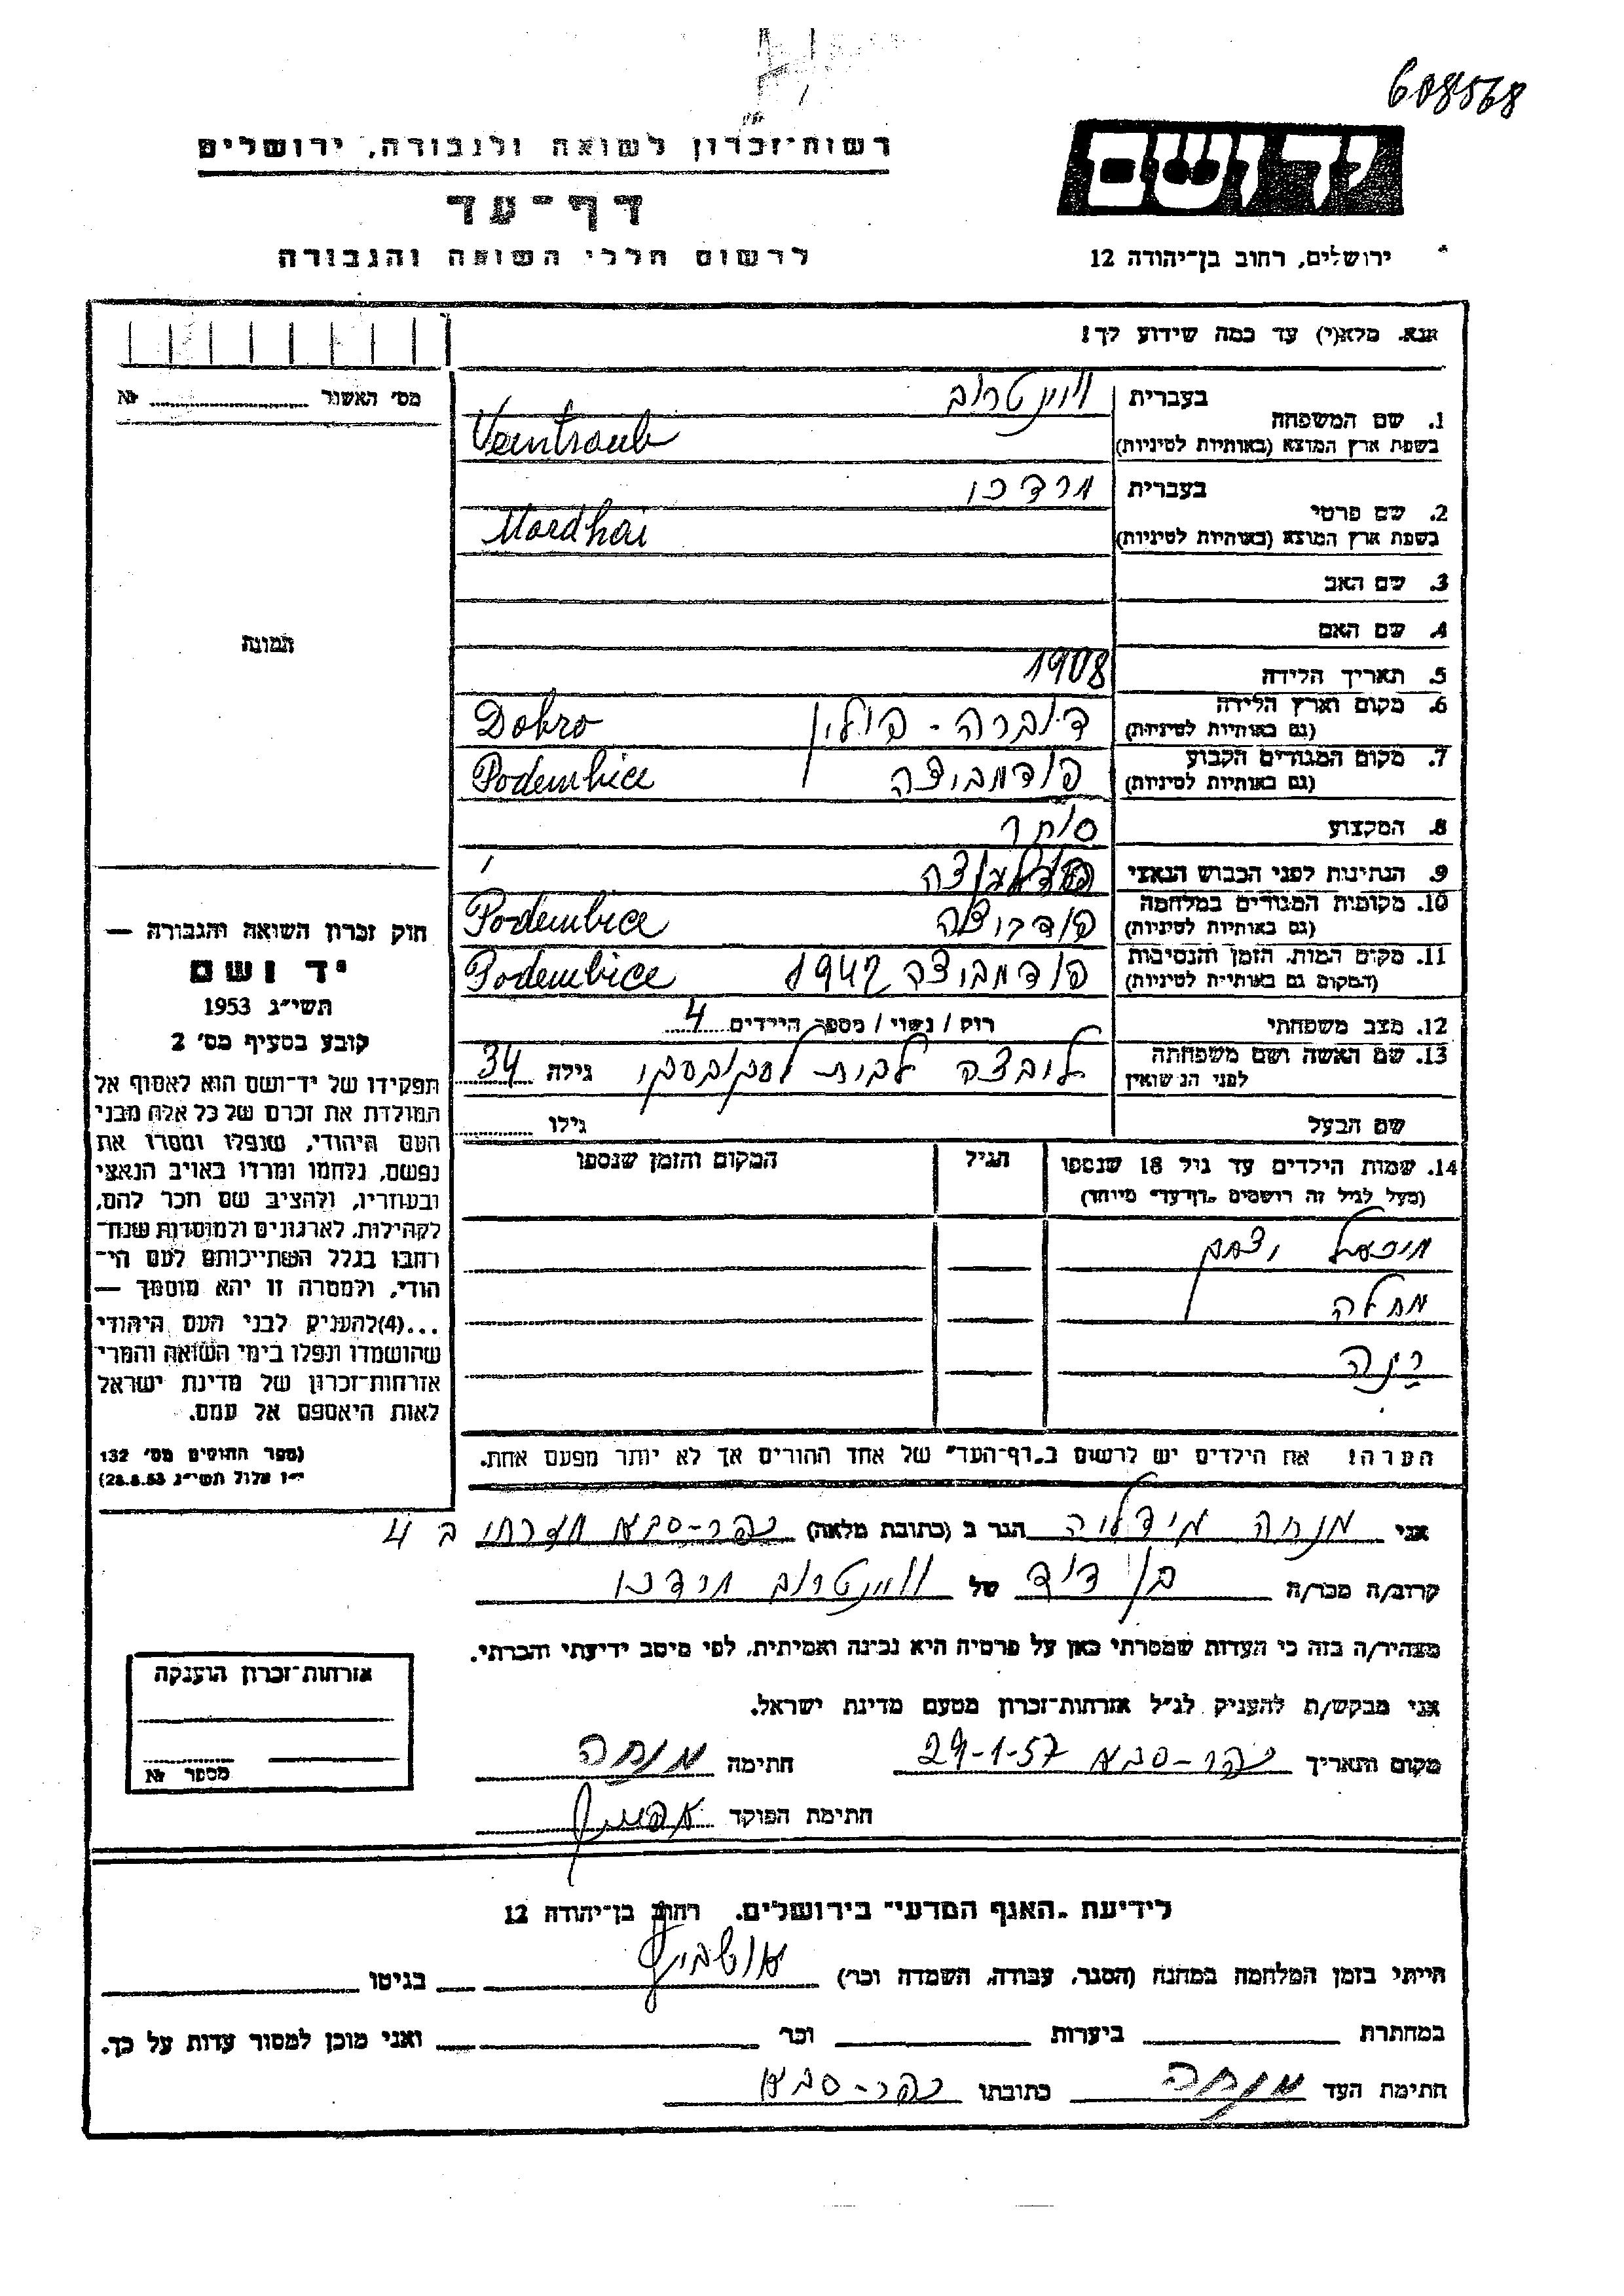 608568
יד ושם
רשות-זכרון לשואה ולגבורה, ירושלים
דף-עד
לרשום חללי השואה והגבורה
ירושלים, רחוב בן-יהודה 12
אנא, מלא(י) עד כמה שידוע לך!
מס' האשור № 
1. שם המשפחה
בעברית וויינטרוב
בשפת ארץ המוצא (באותיות לטיניות) Veintraub
2. שם פרטי
בעברית מרדכי
בשפת ארץ המוצא (באותיות לטיניות) Mardhai
3. שם האב
4. שם האם
תמונה
5. תאריך הלידה 1908
6. מקום וארץ הלידה (גם באותיות לטיניות) דוברה - פולין Dobro
7. מקום המגורים הקבוע (גם באותיות לטיניות) פודמביצה Podembice
8. המקצוע סוחר
9. הנתינות לפני הכבוש הנאצי
10. מקומות המגורים במלחמה (גם באותיות לטיניות) פודביצה Podembice
11. מקום המות, הזמן והנסיבות (המקום גם באותיות לטיניות) פודמביצה 1942 Podembice
12. מצב משפחתי רוק / נשוי / מספר הילדים 4
13. שם האשה ושם משפחתה לפני הנישואין ליבצה לבית גילה 34
שם הבעל גילו
14. שמות הילדים עד גיל 18 שנספו (מעל לגיל זה רושמים "דף-עד" מיוחד) הגיל המקום והזמן שנספו
יצחק
מחלה
רינה
הערה! את הילדים יש לרשום ב"דף-העד" של אחד ההורים אך לא יותר מפעם אחת.
חוק זכרון השואה והגבורה —
יד ושם
תשי"ג 1953
קובע בסעיף מס' 2
תפקידו של יד-ושם הוא לאסוף אל
המולדת את זכרם של כל אלה מבני
העם היהודי, שנפלו ומסרו את
נפשם, נלחמו ומרדו באויב הנאצי
ובעוזריו, ולהציב שם וזכר להם,
לקהילות, לארגונים ולמוסדות שנח-
רבו בגלל השתייכותם לעם הי-
הודי, ולמטרה זו יהא מוסמך —
...(4) להעניק לבני העם היהודי
שהושמדו ונפלו בימי השואה והמרי
אזרחות-זכרון של מדינת ישראל
לאות היאספם אל עמם.
(ספר החוקים מס' 132
י"ז אלול תשי"ג 28.8.53)
אני מנחה מידליה הגר ב (כתובת מלאה) כפר-סבא מזרחי ב 4
קרוב/ה מכר/ה בן דוד של וויינטרוב מרדכי
מצהיר/ה בזה כי העדות שמסרתי כאן על פרטיה היא נכונה ואמיתית, לפי מיטב ידיעתי והכרתי.
אני מבקש/ת להעניק לנ"ל אזרחות-זכרון מטעם מדינת ישראל.
מקום ותאריך כפר-סבא 29-1-57 חתימה מנחה
חתימת הפוקד
אזרחות-זכרון הוענקה
מספר №
לידיעת "האגף המדעי" בירושלים. רחוב בן-יהודה 12
הייתי בזמן המלחמה במחנה (הסגר, עבודה, השמדה וכו') אושביץ בגיטו
במחתרת ביערות וכו' ואני מוכן למסור עדות על כך.
חתימת העד מנחה כתובתו כפר-סבא